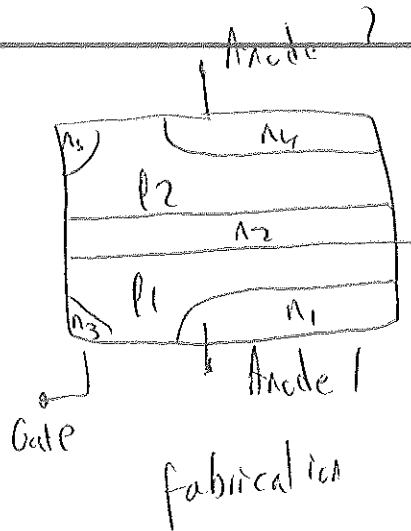 Anode 2
n5 n4
p2
n2
p1
n3 n1
Anode 1
Gate
fabrication